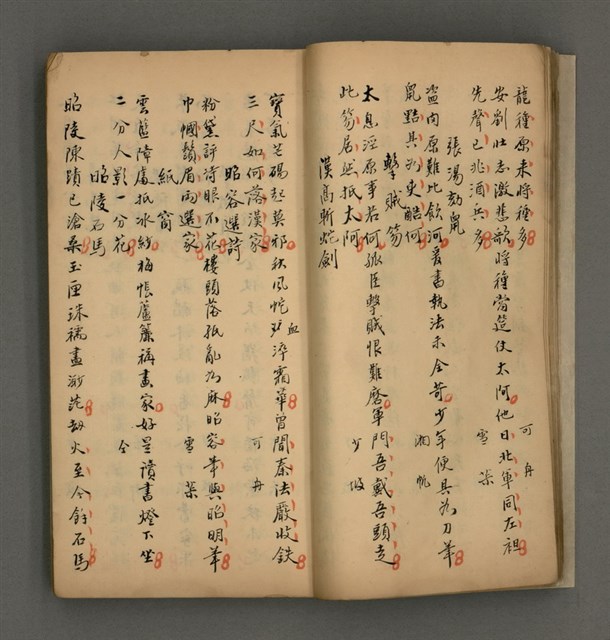 龍種原來將種多
可舟
安劉壯志激悲歌將種當筵仗太阿他日北軍同左袒
先聲已兆酒兵多
雪琹
張湯劾鼠
盜肉原難比飲河爰書執法示全苛少年便具為刀筆
鼠點具為吏酷何
湘帆
擊賊笏
太息涇原事若何孤臣擊賊恨難磨軍門吾戴吾頭走
此笏居然抵太阿
少坡
漢高斬蛇劍
寶氣芒碭起莫邪秋風蛇血淬霜華曾聞秦法嚴收鐵
三尺如何落漢家
可舟
昭容選詩
粉黛評詩眼不花樓頭落紙亂為麻昭容筆與昭明筆
巾幗鬚眉兩選家
雪琹
紙窗
雲藍障處抵冰紗梅帳蘆簾稱畫家好是讀書燈下坐
二分人影一分花
仝
昭陵石馬
昭陵陳蹟已滄桑玉匣珠襦盡渺茫劫火至今餘石馬